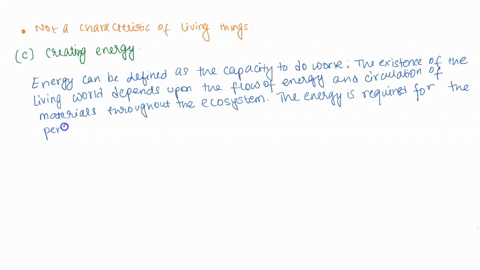 • Not a characteristic of living things.
(c) Creating energy.
Energy can be defined as the capacity to do work. The existence of the
living world depends upon the flow of energy and circulation of
materials throughout the ecosystem. The energy is required for the
per